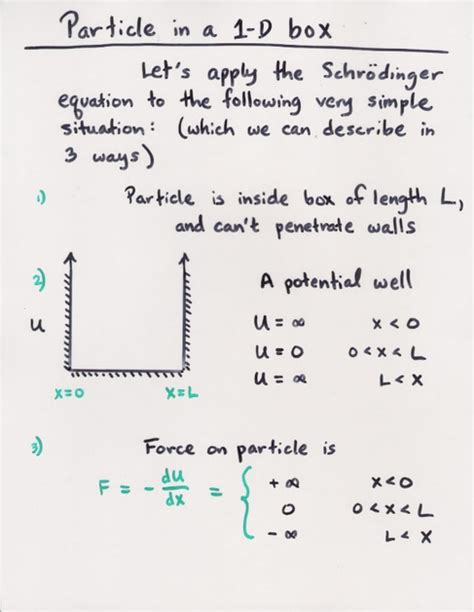 Particle in a 1-D box
Let's apply the Schrödinger
equation to the following very simple
situation: (which we can describe in
3 ways)
1) Particle is inside box of length L,
and can't penetrate walls
2) A potential well
U
U = ∞ x < 0
U = 0 0 < x < L
U = ∞ L < x
x=0 x=L
3) Force on particle is
F = - du/dx = { + ∞ x<0
0 0 < x < L
- ∞ L < x